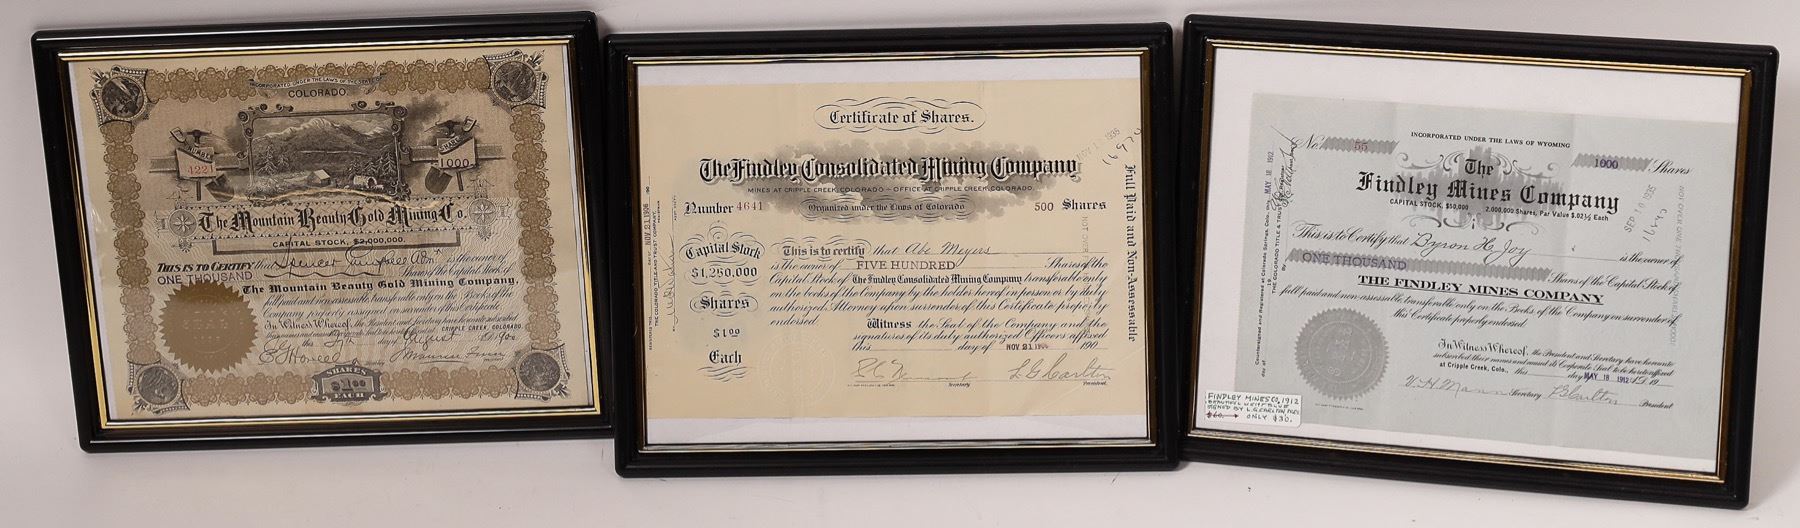 INCORPORATED UNDER THE LAWS OF THE STATE OF
COLORADO.
NUMBER
4221
SHARES
1000
The Mountain Beauty Gold Mining Co.
CAPITAL STOCK, $2,000,000.
This is to Certify that Spencer is the owner of
ONE THOUSAND Shares of the Capital Stock of
The Mountain Beauty Gold Mining Company,
full paid and non-assessable transferable only on the Books of the
Company properly assigned on surrender of this Certificate.
In Witness Whereof, the President and Secretary have hereunto subscribed
CRIPPLE CREEK, COLORADO.
this day of August 1900
SHARES
$1.00
EACH
Certificate of Shares.
The Findley Consolidated Mining Company
MINES AT CRIPPLE CREEK, COLORADO - OFFICE AT CRIPPLE CREEK, COLORADO.
Organized under the Laws of Colorado
Number 4641
500 Shares
Capital Stock
$1,250,000
Shares
$1.00
Each
This is to certify that Abe Meyers
is the owner of FIVE HUNDRED Shares of the
Capital Stock of The Findley Consolidated Mining Company transferable only
on the books of the Company by the holder hereof in person or by duly
authorized Attorney upon surrender of this Certificate properly
endorsed.
Witness the Seal of the Company and the
signatures of its duly authorized Officers affixed
this day of NOV 21 1906 190
L G Carlton
Secretary
President
Full Paid and Non-Assessable
NOV 21 1906
THE COLORADO TITLE AND TRUST COMPANY,
1935
1692
NOT OVER
INCORPORATED UNDER THE LAWS OF WYOMING
No. 55
1000 Shares
The
Findley Mines Company
CAPITAL STOCK, $50,000 2,000,000 Shares, Par Value $.02½ Each
This is to Certify that Byron H. Joy is the owner of
ONE THOUSAND Shares of the Capital Stock of
THE FINDLEY MINES COMPANY
full paid and non-assessable transferable only on the Books of the Company on surrender of
this Certificate properly endorsed.
In Witness Whereof, the President and Secretary have hereunto
subscribed their names and caused its Corporate Seal to be hereto affixed
at Cripple Creek, Colo., this day MAY 18 1912 A.D. 19
Secretary
President
Countersigned and Registered at Colorado Springs, Colo. day of
MAY 18 1912
THE COLORADO TITLE & TRUST
SEP 19 1935
FINDLEY MINES CO, 1912
BEAUTIFUL LIGHT BLUE
SIGNED BY L.G. CARLTON PRES.
$60. → ONLY $30.